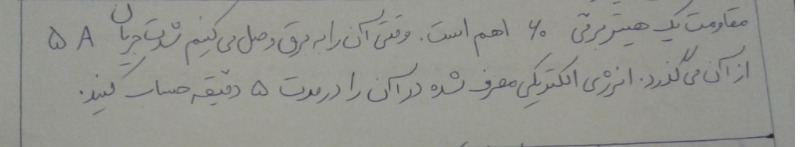 مقاومت یک هیتر برقی ۶۰ اهم است. وقتی آن را به برق وصل می کنیم شدت جریان ۵ A
از آن می گذرد. انرژی الکتریکی مصرف شده در آن را در مدت ۵ دقیقه حساب کنید.